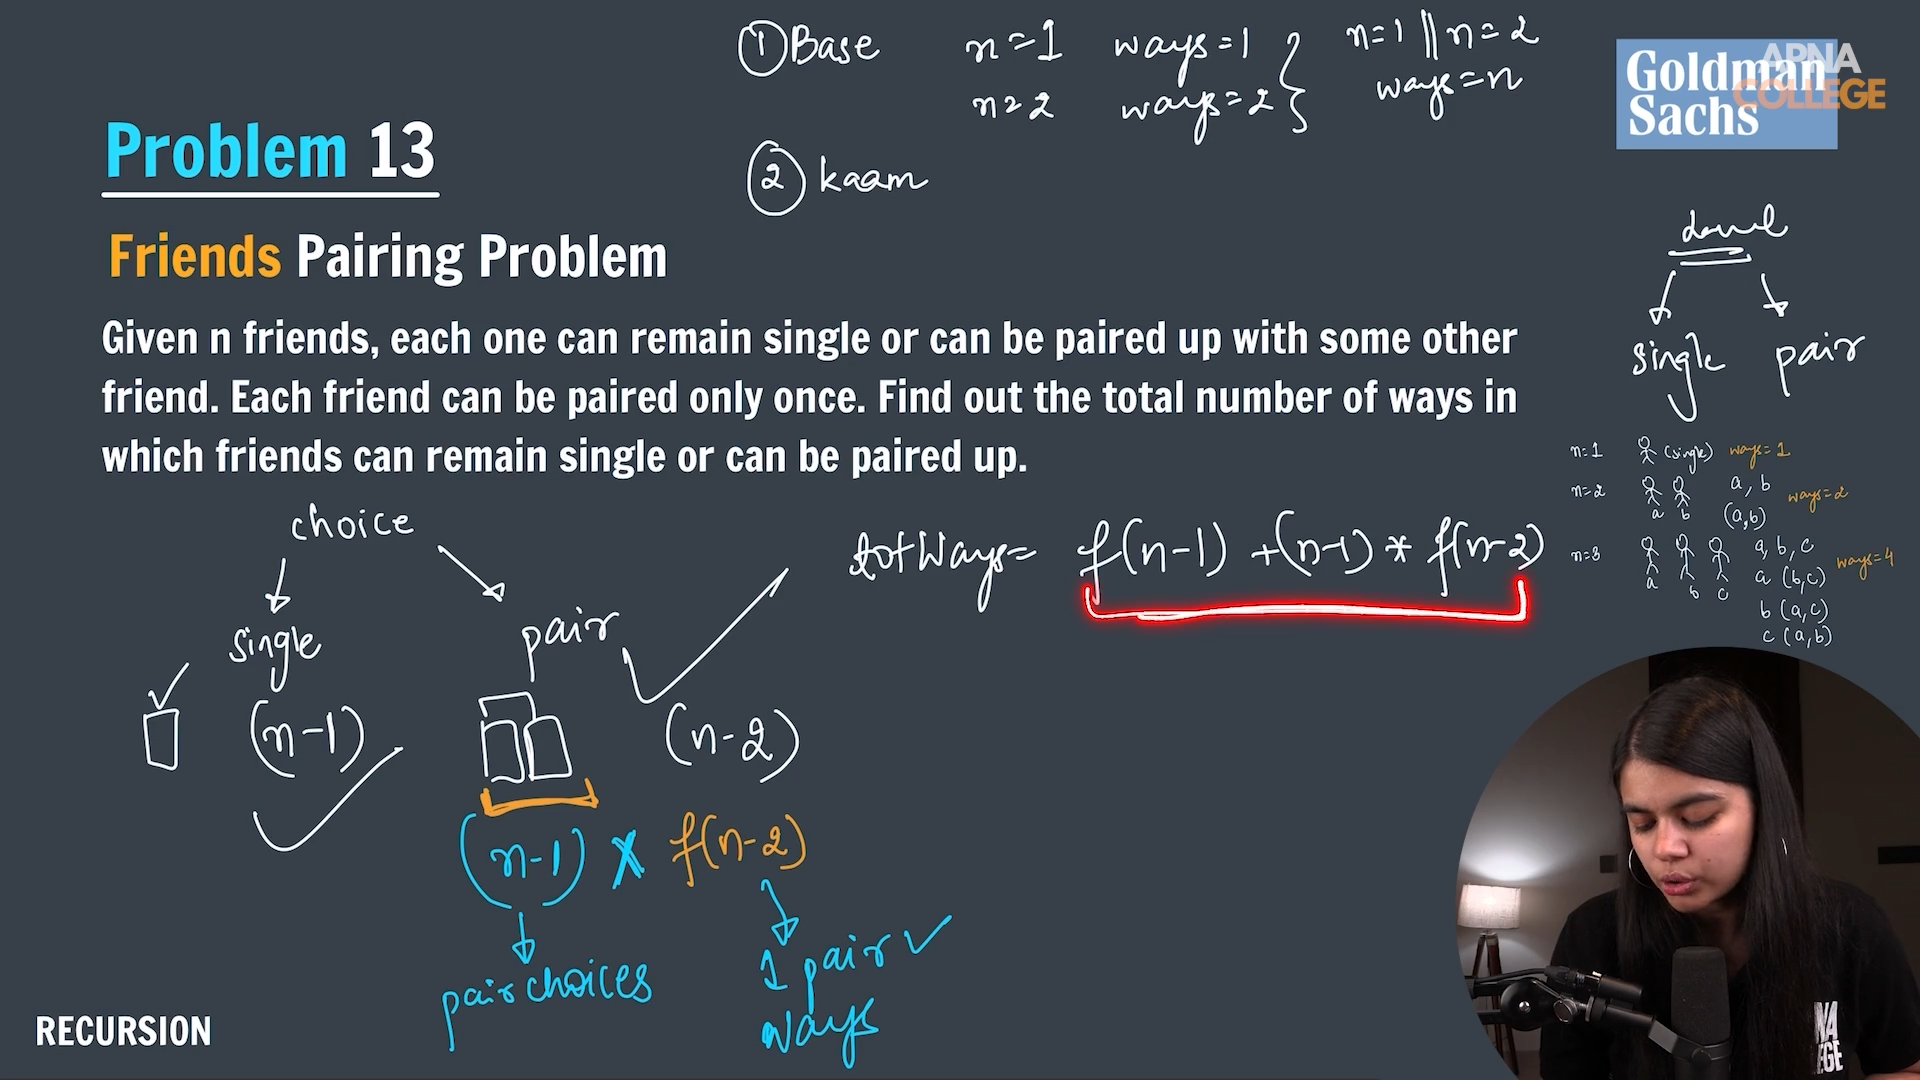 ① Base n=1 ways=1 } n=1 || n=2
n=2 ways=2 } ways=n
② kaam
Goldman
Sachs
APNA
COLLEGE
Problem 13
Friends Pairing Problem
Given n friends, each one can remain single or can be paired up with some other
friend. Each friend can be paired only once. Find out the total number of ways in
which friends can remain single or can be paired up.
single pair
n=1 (single) ways=1
n=2 a, b ways=2
a b (a,b)
n=3 a, b, c ways=4
a b c a (b,c)
b (a,c)
c (a,b)
choice
single pair
(n-1) (n-2)
totWays= f(n-1) +(n-1)* f(n-2)
(n-1) x f(n-2)
pair choices
1 pair
ways
RECURSION